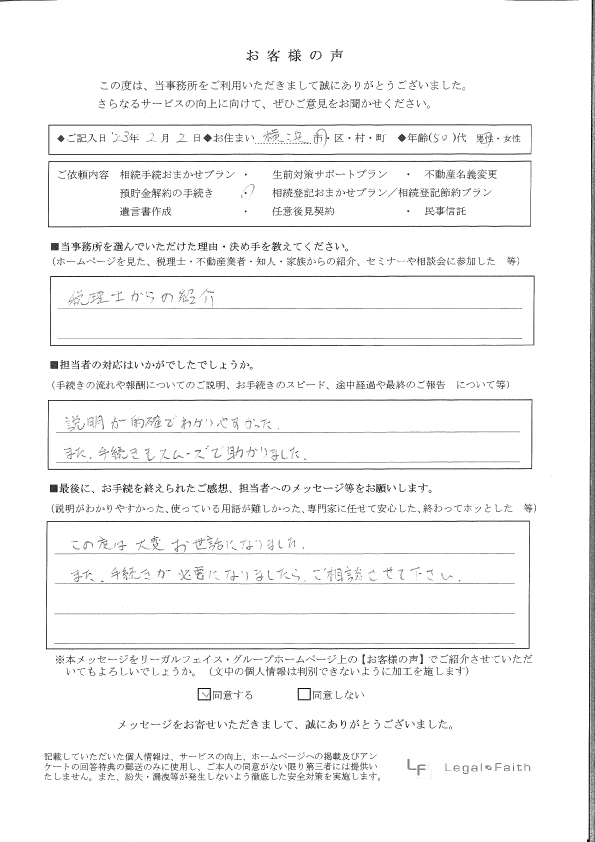 お客様の声
この度は、当事務所をご利用いただきまして誠にありがとうございました。
さらなるサービスの向上に向けて、ぜひご意見をお聞かせください。
◆ご記入日 '23年 2月 2日◆お住まい 横浜 市・区・村・町 ◆年齢(50)代 男性・女性
ご依頼内容 相続手続おまかせプラン ・ 生前対策サポートプラン ・ 不動産名義変更
預貯金解約の手続き ・ 相続登記おまかせプラン／相続登記節約プラン
遺言書作成 ・ 任意後見契約 ・ 民事信託
■当事務所を選んでいただけた理由・決め手を教えてください。
（ホームページを見た、税理士・不動産業者・知人・家族からの紹介、セミナーや相談会に参加した 等）
税理士からの紹介
■担当者の対応はいかがでしたでしょうか。
（手続きの流れや報酬についてのご説明、お手続きのスピード、途中経過や最終のご報告 について等）
説明が的確でわかりやすかった.
また、手続きもスムーズで助かりました.
■最後に、お手続を終えられたご感想、担当者へのメッセージ等をお願いします。
（説明がわかりやすかった、使っている用語が難しかった、専門家に任せて安心した、終わってホッとした 等）
この度は大変お世話になりました.
また、手続きが必要になりましたら、ご相談させて下さい.
※本メッセージをリーガルフェイス・グループホームページ上の【お客様の声】でご紹介させていただ
いてもよろしいでしょうか。（文中の個人情報は判別できないように加工を施します）
☑同意する □同意しない
メッセージをお寄せいただきまして、誠にありがとうございました。
記載していただいた個人情報は、サービスの向上、ホームページへの掲載及びアン
ケートの回答特典の郵送のみに使用し、ご本人の同意がない限り第三者には提供い
たしません。また、紛失・漏洩等が発生しないよう徹底した安全対策を実施します。
LF Legal Faith